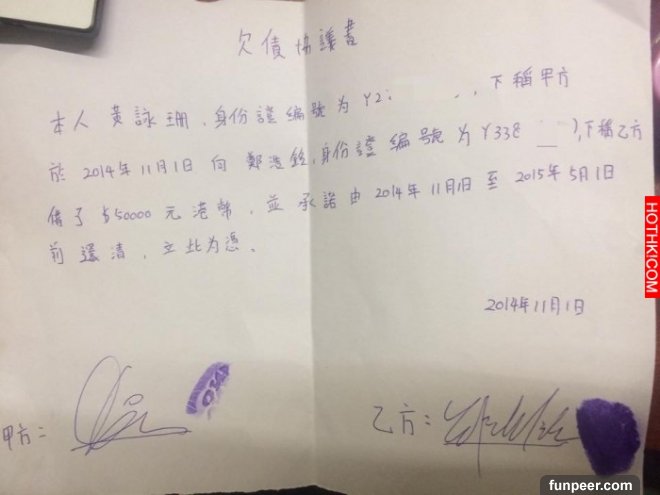 欠債协議書
本人 黃詠珊，身份證编號为Y2 ，下稱甲方
於2014年11月1日向鄭浩銓，身份證编號为Y338 )，下稱乙方
借了$50000元港幣，並承諾由2014年11月1日至2015年5月1日
前還清，立此为憑。
2014年11月1日
甲方：
乙方：
HOTHK!COM
funpeer.com